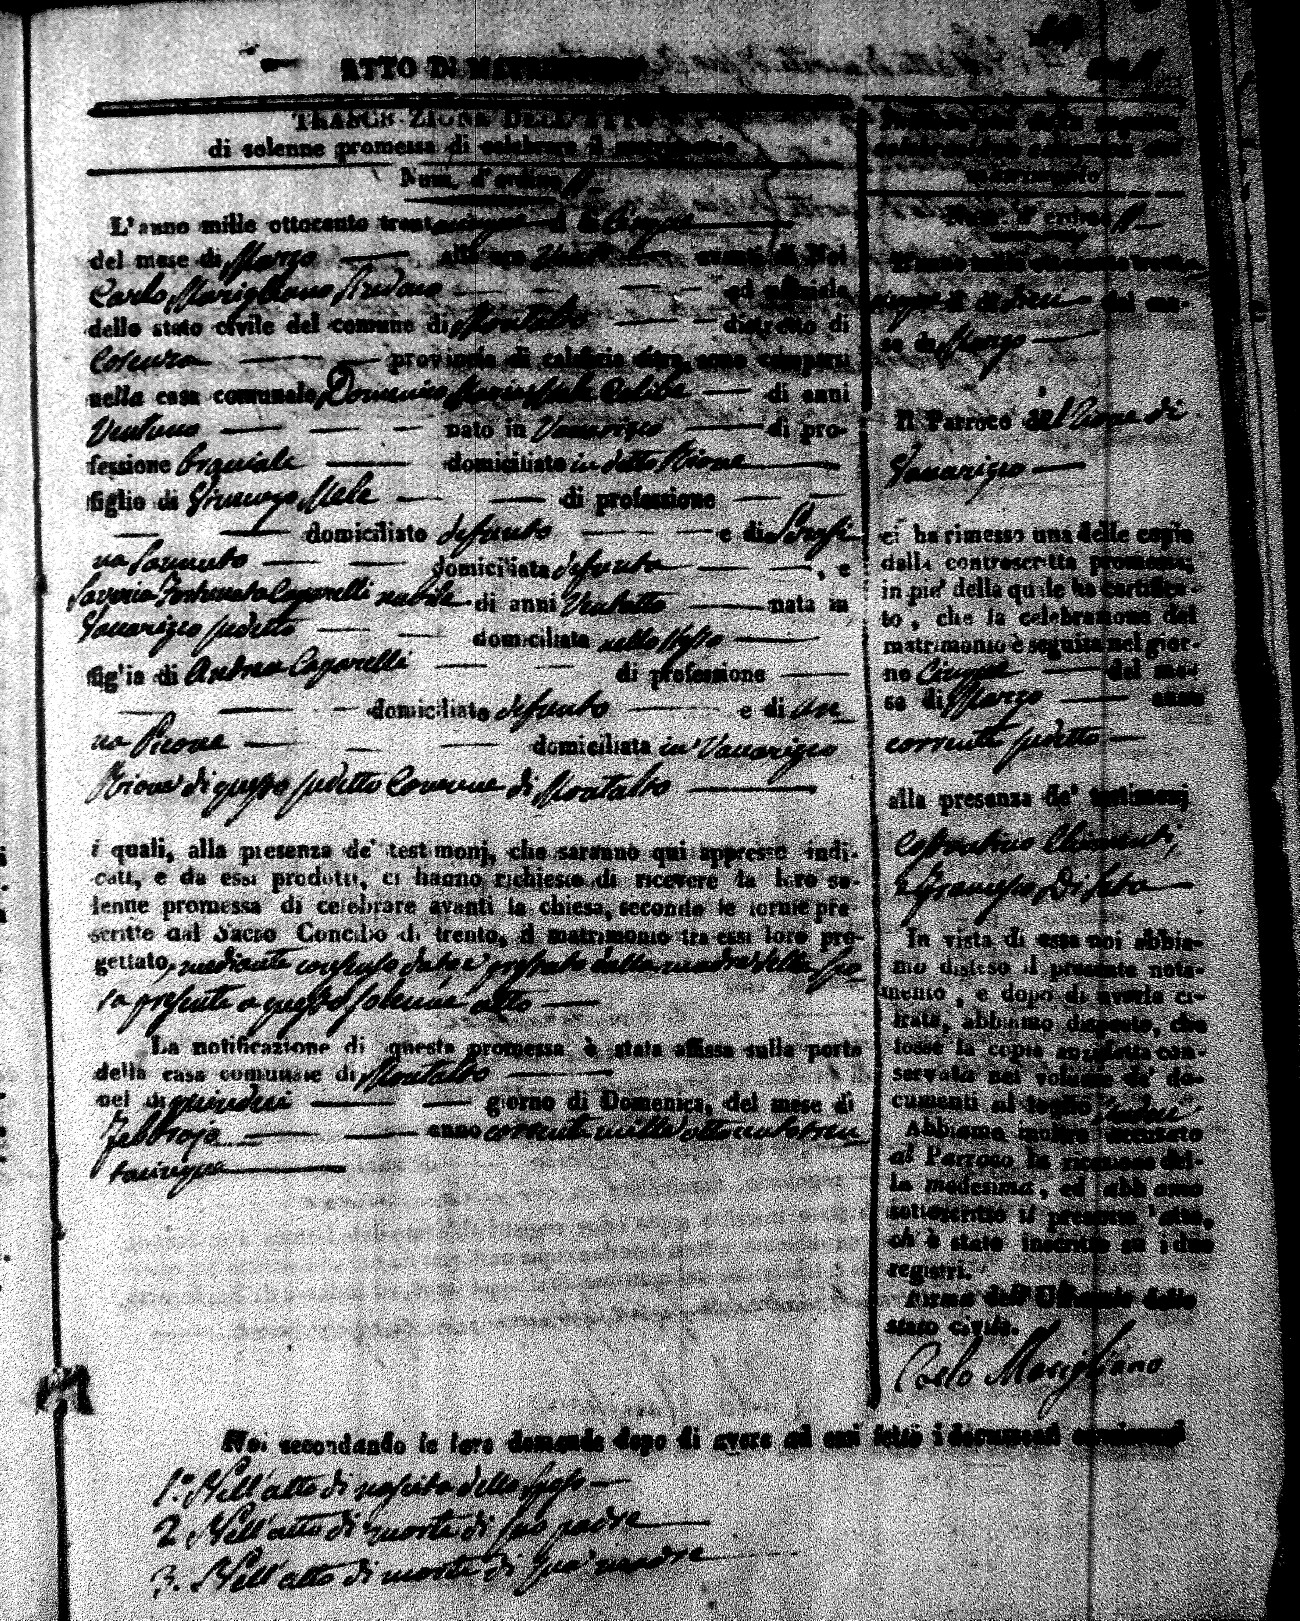 ATTO DI MATRIMONIO
TRASCRIZIONE DELL'ATTO
di solenne promessa di celebrare il matrimonio
Num. d'ordine
L'anno mille ottocento trentacinque il dì Cinque
del mese di Marzo alle ore avanti di Noi
Carlo Marigliano ed ufficiale
dello stato civile del comune di Montalto distretto di
Cosenza provincia di calabria citra, sono comparsi
nella casa comunale Domenico Mele Celibe di anni
Ventuno nato in Vaccarizzo di pro-
fessione Braciale domiciliato in detto Rione
figlio di Mele di professione
domiciliato defunto e di Serafi
na domiciliata defunta , e
Saveria Fortunata Caparelli nubile di anni Ventotto nata in
Vaccarizzo predetto domiciliata nello stesso
figlia di Andrea Caparelli di professione
domiciliato defunto e di An
na Picone domiciliata in Vaccarizzo
Rione di questo predetto Comune di Montalto
i quali, alla presenza de' testimonj, che saranno qui appresso indi-
cati, e da essi prodotti, ci hanno richiesto di ricevere la loro so-
lenne promessa di celebrare avanti la chiesa, secondo le forme pre-
scritte dal Sacro Concilio di trento, il matrimonio tra essi loro pro-
gettato, mediante consenso prestato dalla madre della Spo
sa presente a questo solenne atto
La notificazione di questa promessa è stata affissa sulla porta
della casa comunale di Montalto
nel dì quindici giorno di Domenica, del mese di
Febbrajo anno corrente mille ottocento tren
tacinque
Num. d'ordine
L'anno mille ottocento trenta
cinque il dì del me-
se di Marzo
Il Parroco del Rione di
Vaccarizzo
ci ha rimesso una delle copie
della controscritta promessa,
in piè della quale ha certifica-
to, che la celebrazione del
matrimonio è seguita nel gior-
no Cinque del me-
se di Marzo anno
corrente predetto
alla presenza de' testimonj
Chimenti,
e Di
In vista di essa noi abbia-
mo disteso il presente nota-
mento, e dopo di averla ci-
frata, abbiamo disposto, che
fosse la copia anzidetta con-
servata nel volume de' do-
cumenti al foglio
Abbiamo inoltre accusato
al Parroco la ricezione del-
la medesima, ed abbiamo
sottoscritto il presente atto,
ch' è stato inscritto su i due
registri.
Firma dell'Ufficiale dello
stato civile.
Carlo Marigliano
Noi secondando le loro domande dopo di avere ad essi letto i documenti
1.° Nell'atto di nascita dello Sposo
2. Nell'atto di morte di suo padre
3. Nell'atto di morte di sua madre